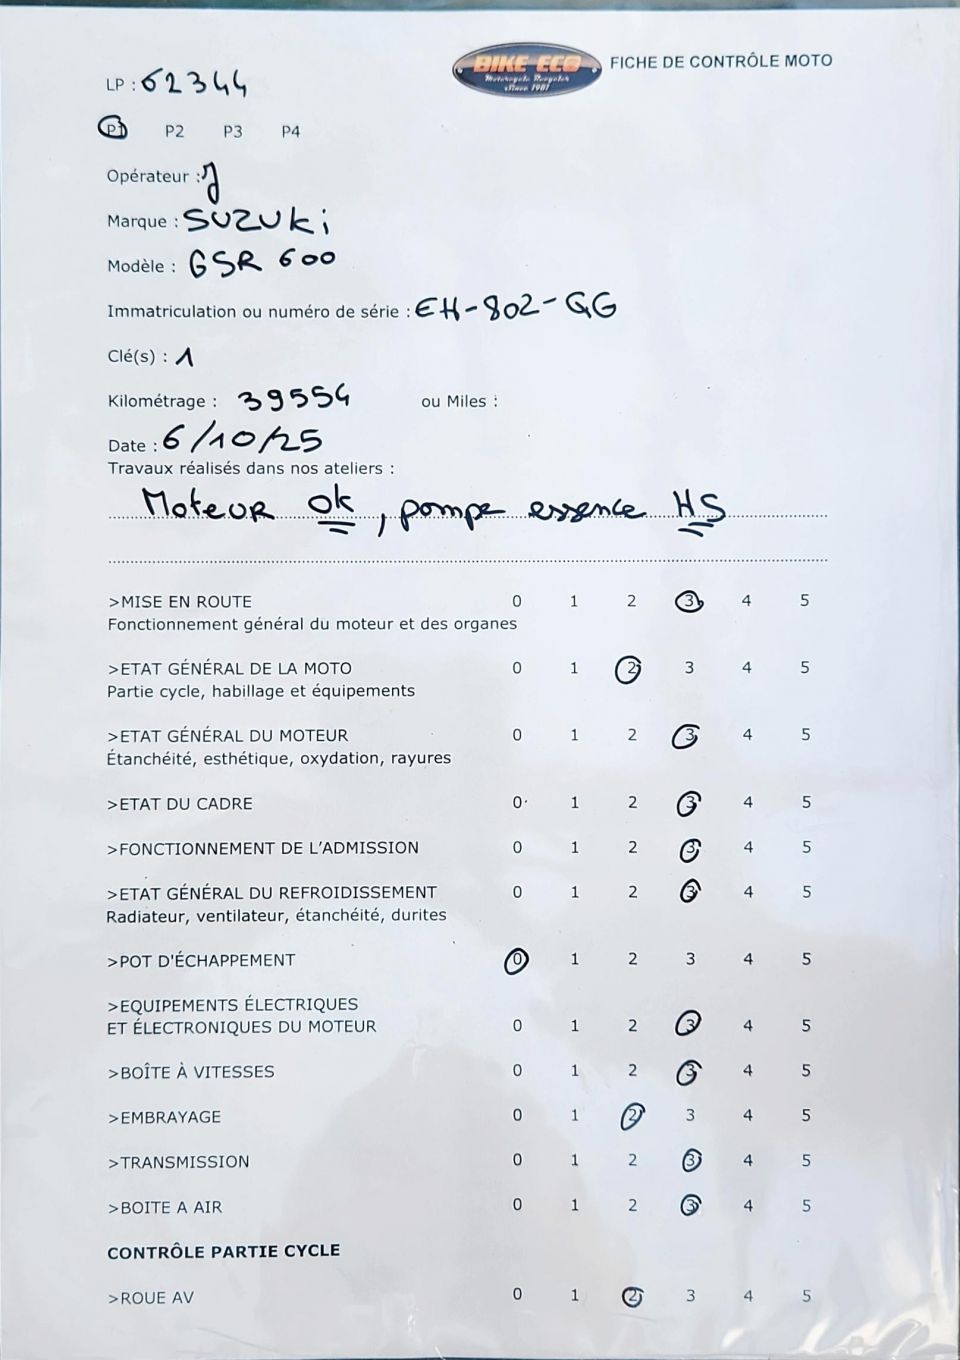 BIKE ECO
Motorcycle Recycler
Since 1981
FICHE DE CONTRÔLE MOTO
LP : 62344
P1 P2 P3 P4
Opérateur : J
Marque : SUZUKi
Modèle : GSR 600
Immatriculation ou numéro de série : EH-802-QG
Clé(s) : 1
Kilométrage : 39554 ou Miles :
Date : 6/10/25
Travaux réalisés dans nos ateliers :
Moteur ok, pompe essence HS
>MISE EN ROUTE 0 1 2 3 4 5
Fonctionnement général du moteur et des organes
>ETAT GÉNÉRAL DE LA MOTO 0 1 2 3 4 5
Partie cycle, habillage et équipements
>ETAT GÉNÉRAL DU MOTEUR 0 1 2 3 4 5
Étanchéité, esthétique, oxydation, rayures
>ETAT DU CADRE 0 1 2 3 4 5
>FONCTIONNEMENT DE L'ADMISSION 0 1 2 3 4 5
>ETAT GÉNÉRAL DU REFROIDISSEMENT 0 1 2 3 4 5
Radiateur, ventilateur, étanchéité, durites
>POT D'ÉCHAPPEMENT 0 1 2 3 4 5
>EQUIPEMENTS ÉLECTRIQUES
ET ÉLECTRONIQUES DU MOTEUR 0 1 2 3 4 5
>BOÎTE À VITESSES 0 1 2 3 4 5
>EMBRAYAGE 0 1 2 3 4 5
>TRANSMISSION 0 1 2 3 4 5
>BOITE A AIR 0 1 2 3 4 5
CONTRÔLE PARTIE CYCLE
>ROUE AV 0 1 2 3 4 5